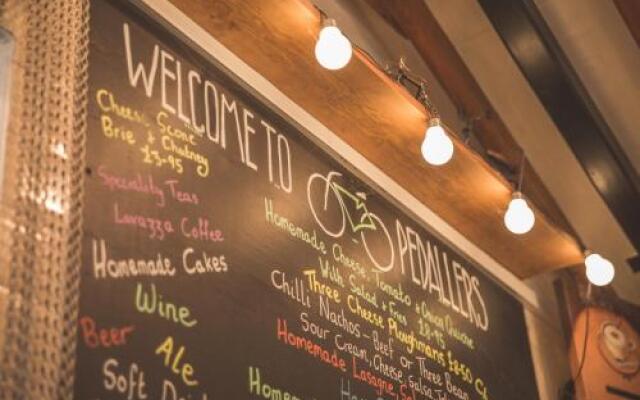 WELCOME TO PEDALLERS
Cheese Scone
Brie & Chutney
£3-95
Speciality Teas
Lavazza Coffee
Homemade Cakes
Wine
Beer
Ale
Soft Drinks
Homemade Cheese, Tomato & Onion Quiche
With Salad & Fries £8-95
Three Cheese Ploughmans £8-50
Chilli Nachos - Beef or Three Bean
Sour Cream, Cheese, Salsa
Homemade Lasagne,
Homem